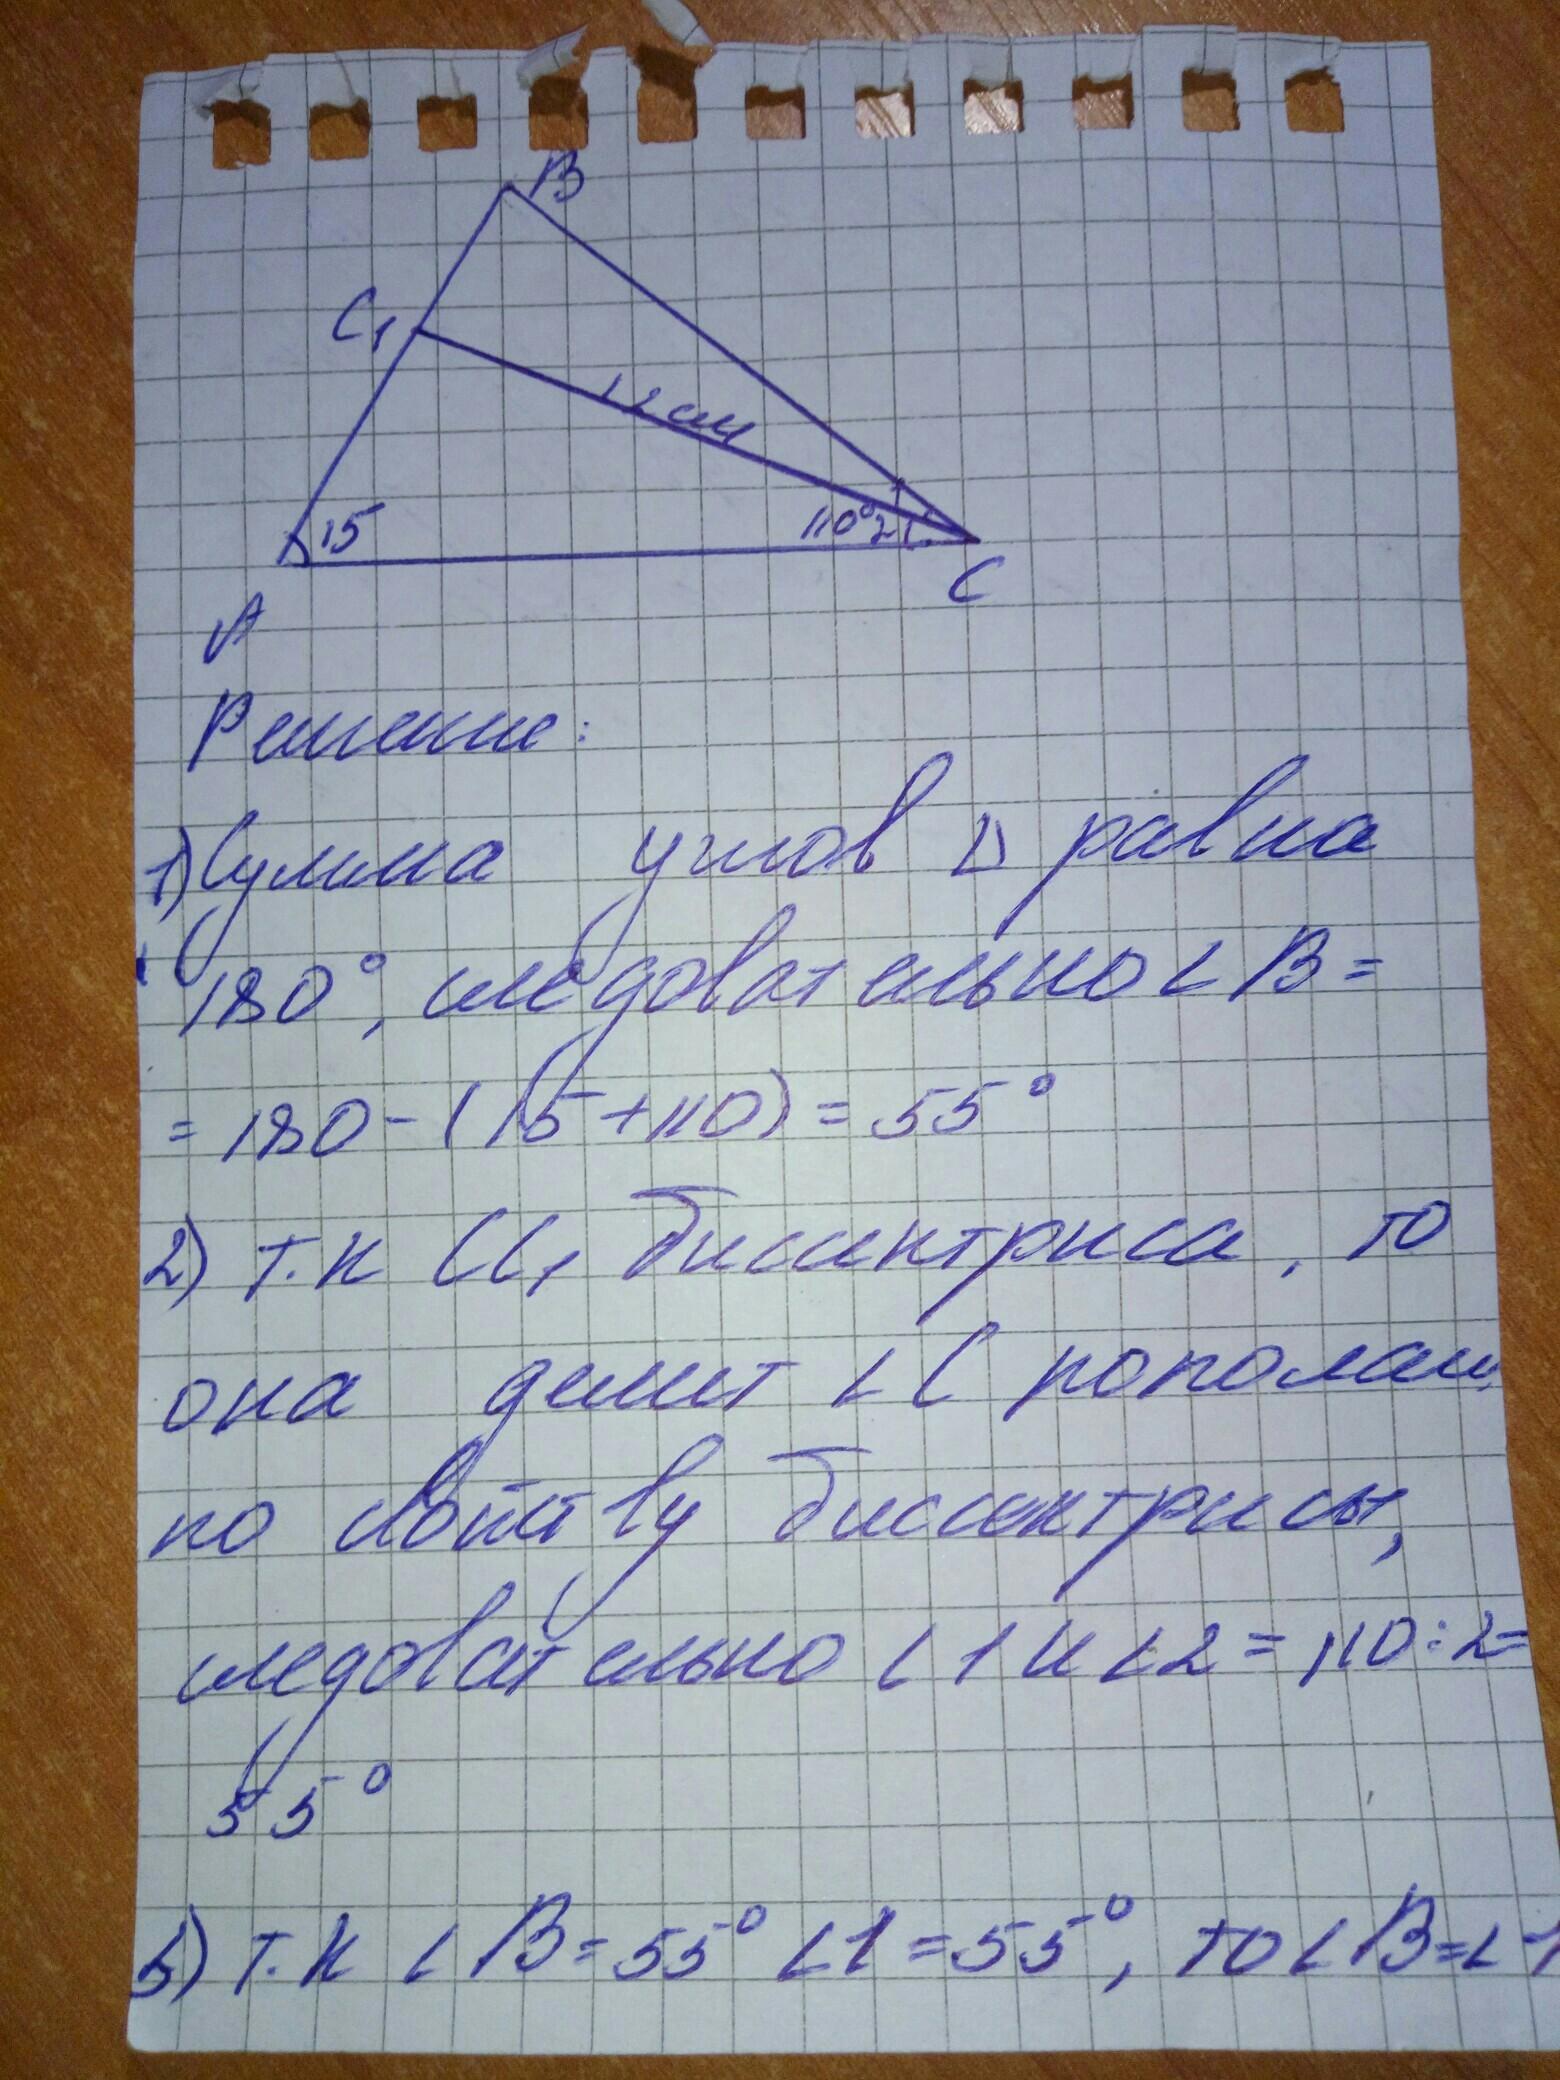 B
C1
12 см
15
110°
1
2
A
C
Решение:
1) Сумма углов Δ равна
180°, следовательно ∠B=
= 180-(15+110)=55°
2) т.к CC1 биссектриса, то
она делит ∠C пополам,
по свойству биссектрисы,
следовательно ∠1 и ∠2 = 110:2=
55°
3) т.к ∠B=55° ∠1=55°, то ∠B=∠1